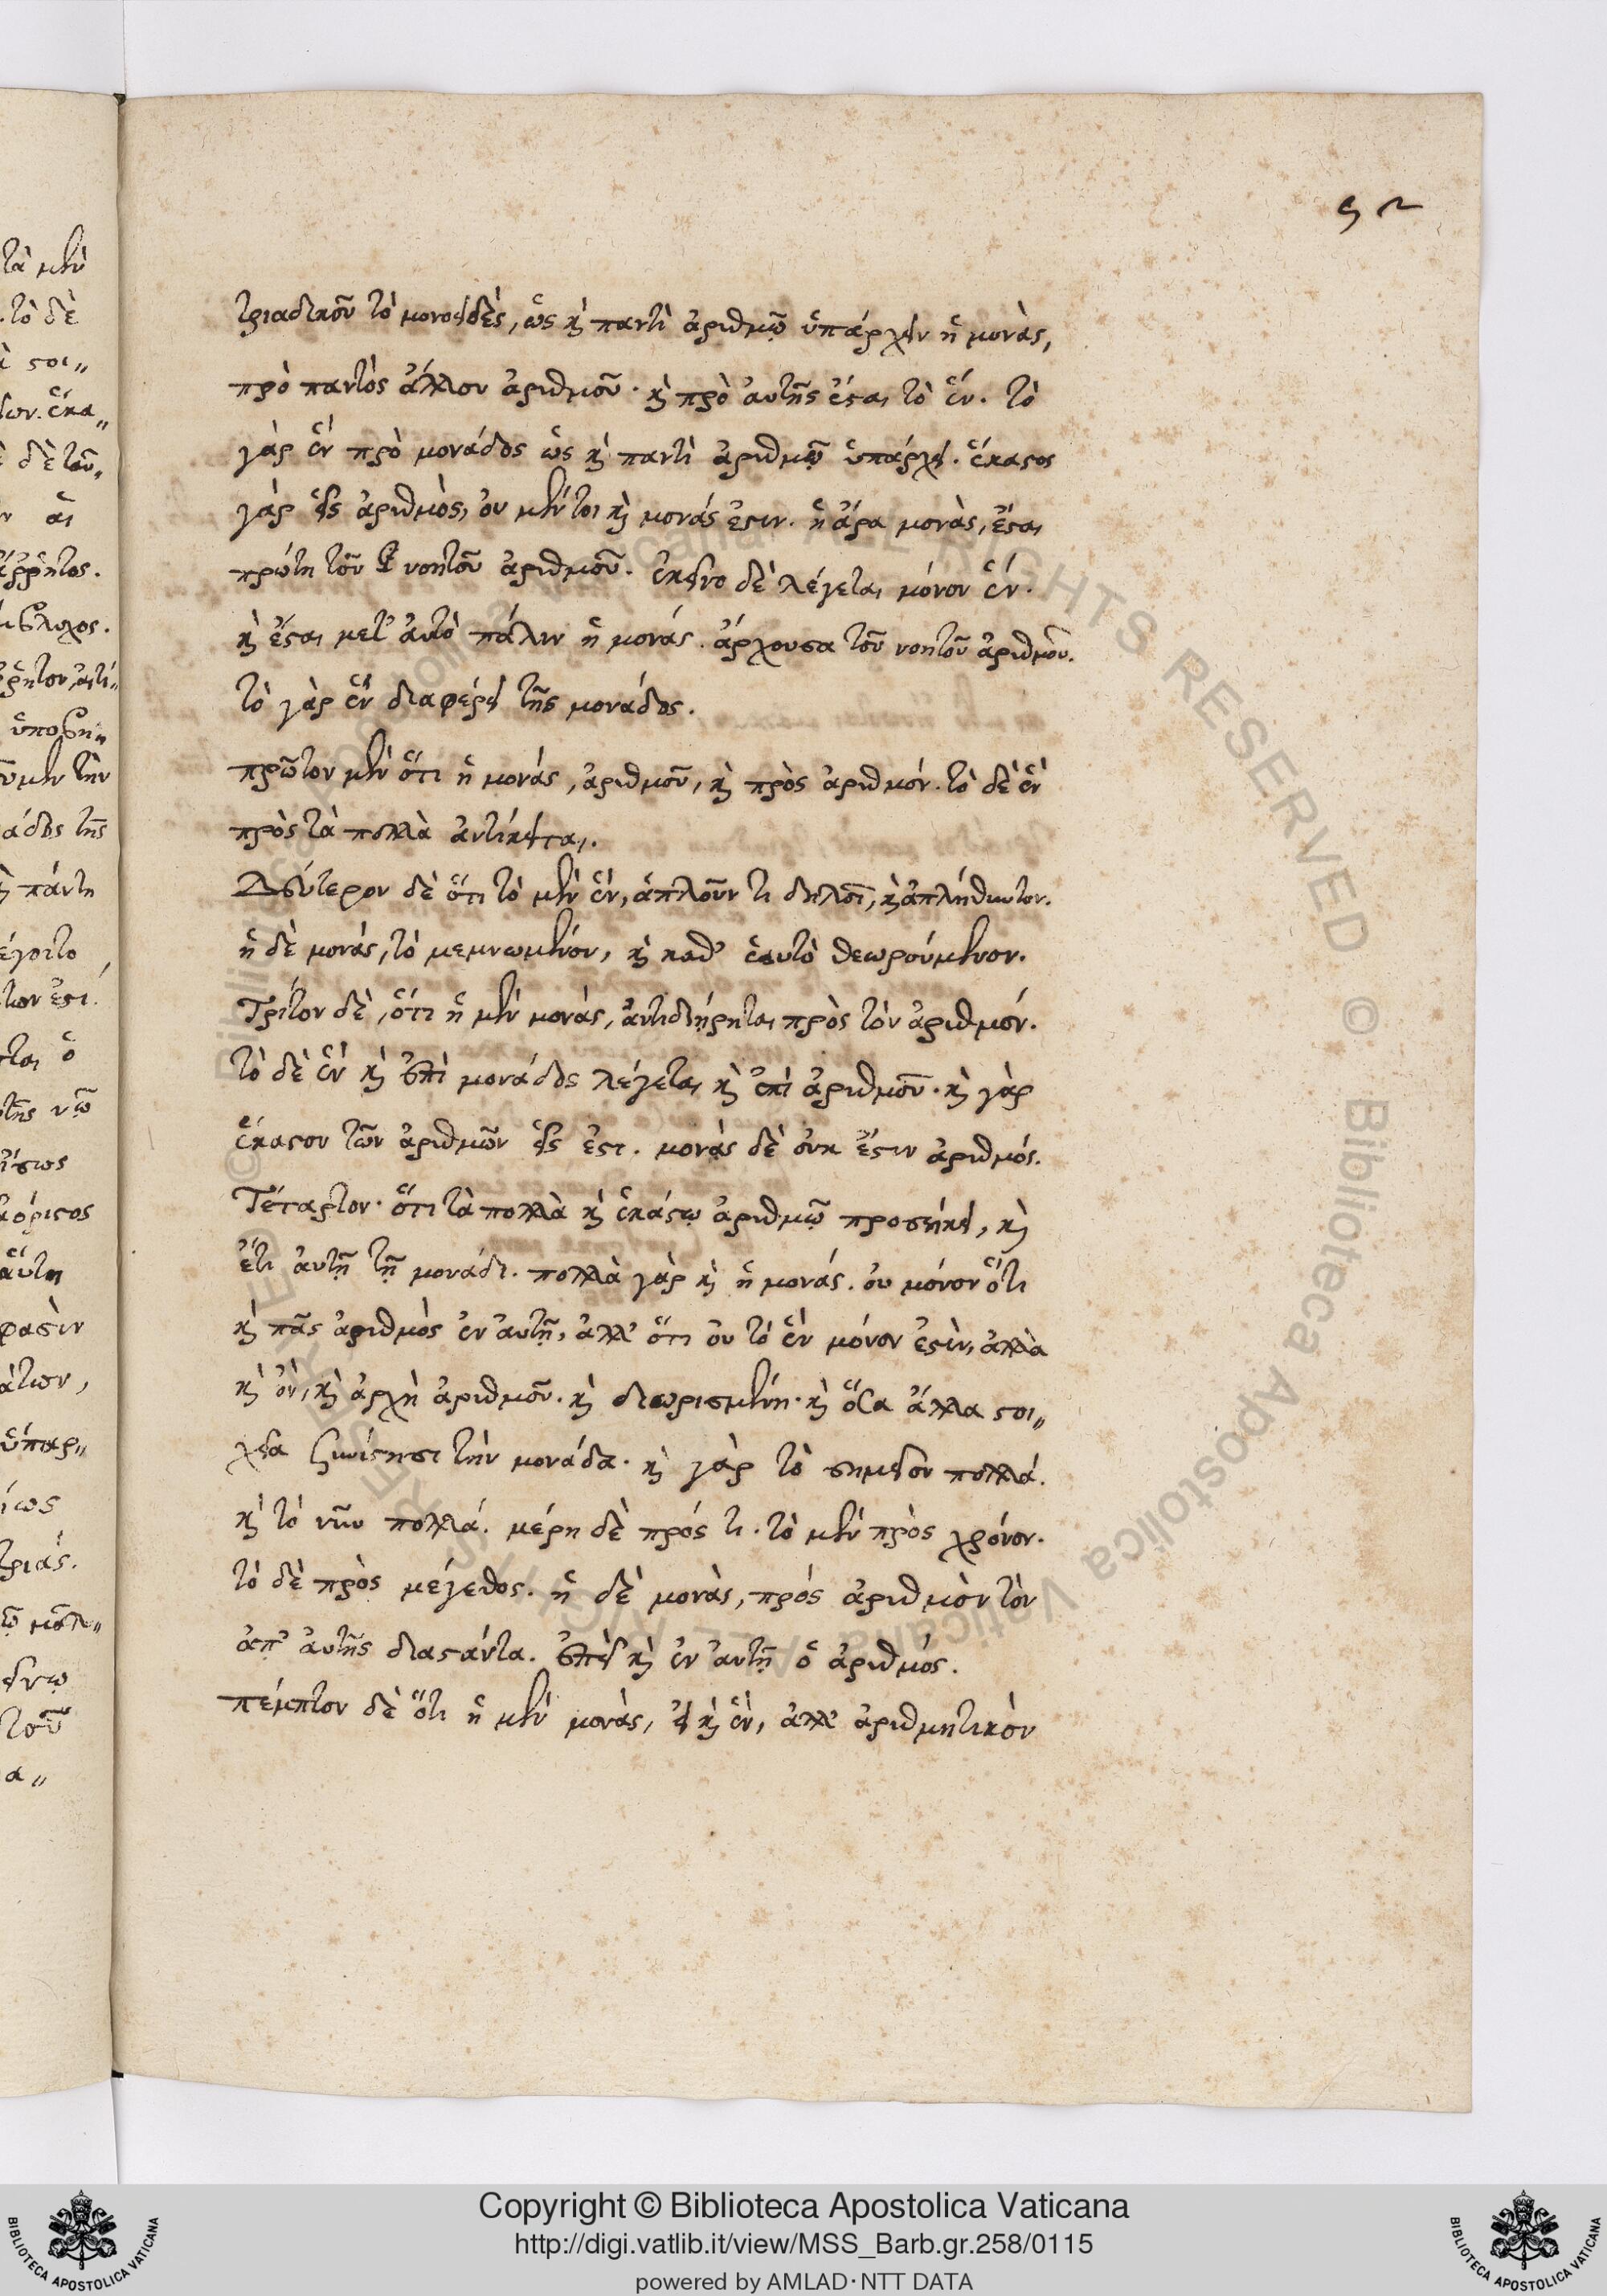 52
τριαδικοῦ τὸ μονοειδές, ὡς καὶ παντὶ ἀριθμῷ ὑπάρχειν ἡ μονὰς,
πρὸ παντὸς ἄλλου ἀριθμοῦ. καὶ πρὸ αὐτῆς ἔσται τὸ ἕν. τὸ
γὰρ ἓν πρὸ μονάδος ὡς καὶ παντὶ ἀριθμῷ ὑπάρχει. ἕκαστος
γὰρ εἷς ἀριθμὸς, οὐ μέντοι καὶ μονάς ἐστιν. ἡ ἄρα μονὰς, ἔσται
πρώτη τοῦ νοητοῦ ἀριθμοῦ. ἐκεῖνο δὲ λέγεται μόνον ἕν.
καὶ ἔσται μετ' αὐτὸ πάλιν ἡ μονάς. ἄρχουσα τοῦ νοητοῦ ἀριθμοῦ.
τὸ γὰρ ἓν διαφέρει τῆς μονάδος.
πρῶτον μὲν ὅτι ἡ μονάς, ἀριθμοῦ, καὶ πρὸς ἀριθμόν. τὸ δὲ ἓν
πρὸς τὰ πολλὰ ἀντίκειται.
Δεύτερον δὲ ὅτι τὸ μὲν ἕν, ἁπλοῦν τι δηλοῖ, καὶ ἀπλήθυντον.
ἡ δὲ μονάς, τὸ μεμνωμένον, καὶ καθ' ἑαυτὸ θεωρούμενον.
Τρίτον δὲ, ὅτι ἡ μὲν μονάς, ἀντιδιῄρηται πρὸς τὸν ἀριθμόν.
τὸ δὲ ἓν καὶ ἐπὶ μονάδος λέγεται καὶ ἐπὶ ἀριθμοῦ. καὶ γὰρ
ἕκαστον τῶν ἀριθμῶν εἷς ἐστι. μονὰς δὲ οὐκ ἔστιν ἀριθμός.
Τέταρτον. ὅτι τὰ πολλὰ καὶ ἑκάστῳ ἀριθμῷ προσήκει, καὶ
ἔτι αὐτῇ τῇ μονάδι. πολλὰ γὰρ καὶ ἡ μονάς. οὐ μόνον ὅτι
καὶ πᾶς ἀριθμὸς ἐν αὐτῇ, ἀλλ' ὅτι οὐ τὸ ἓν μόνον ἐστὶν, ἀλλὰ
καὶ ὄν, καὶ ἀρχὴ ἀριθμοῦ. καὶ διωρισμένη. καὶ ὅσα ἄλλα στοι〃
χεῖα συνίστησι τὴν μονάδα. καὶ γὰρ τὸ σημεῖον πολλά.
καὶ τὸ νῦν πολλά. μέρη δὲ πρός τι. τὸ μὲν πρὸς χρόνον.
τὸ δὲ πρὸς μέγεθος. ἡ δὲ μονὰς, πρός ἀριθμὸν τὸν
ἀπ' αὐτῆς διαστάντα. ἐπεὶ καὶ ἐν αὐτῇ ὁ ἀριθμός.
πέμπτον δὲ ὅτι ἡ μὲν μονὰς, εἰ καὶ ἓν, ἀλλ' ἀριθμητικὸν
Copyright © Biblioteca Apostolica Vaticana
http://digi.vatlib.it/view/MSS_Barb.gr.258/0115
powered by AMLAD·NTT DATA
BIBLIOTECA APOSTOLICA VATICANA
BIBLIOTECA APOSTOLICA VATICANA